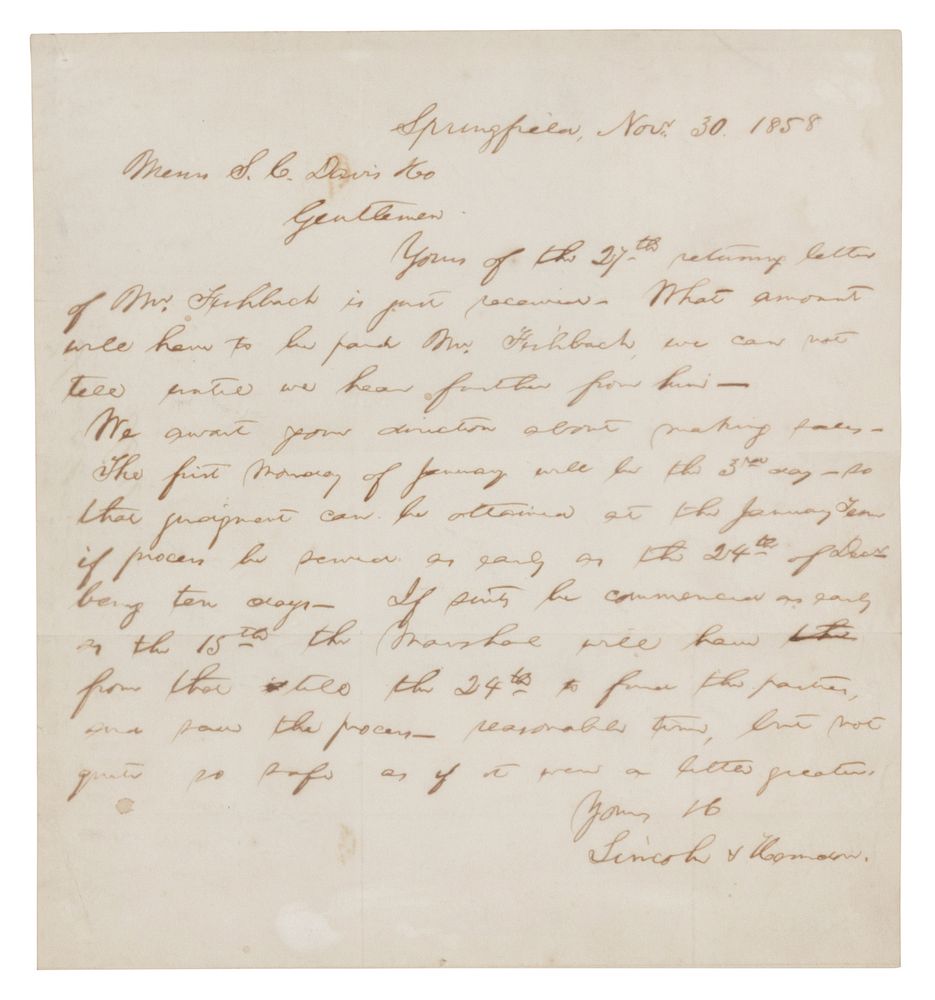 Springfield, Novr. 30. 1858
Messrs S. C. Davis & Co
Gentlemen.
Yours of the 27th returning letter
of Mr. Fishback is just received - What amount
will have to be paid Mr. Fishback, we can not
tell until we hear further from him —
We await your direction about making sales -
The first Monday of January will be the 3rd day - so
that judgment can be obtained at the January Term
if process be served as early as the 24th of Decr
being ten days - If suits be commenced as early
as the 15th the Marshal will have the
from that till the 24th to find the parties,
and serve the process - reasonable time, but not
quite so safe as if it were a little greater.
Yours &c
Lincoln & Herndon.